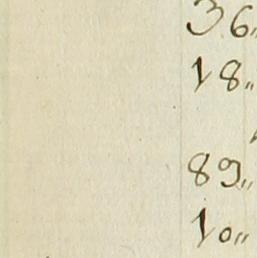 36„
18„
89„
10„